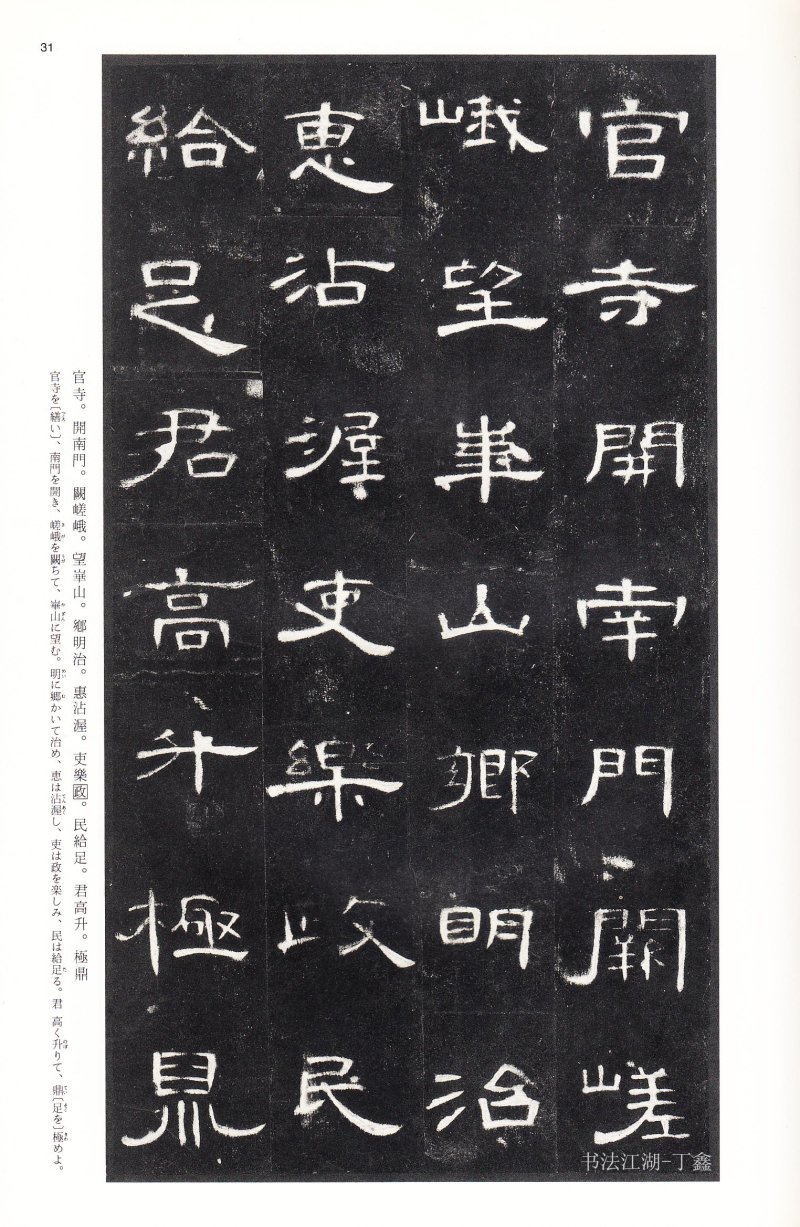 31
官寺開南門闕嵯
峨望崋山鄉明治
恵沾渥吏樂政民
給足君高升極鼎
官寺。開南門。闕嵯峨。望崋山。鄉明治。惠沾渥。吏樂政。民給足。君高升。極鼎
官寺を〔繕い〕、南門を開き、嵯峨を闕ちて、崋山に望む。明に郷かいて治め、恵は沾渥し、吏は政を楽しみ、民は給足る。君 高く升りて、鼎〔足を〕極めよ。
书法江湖-丁鑫